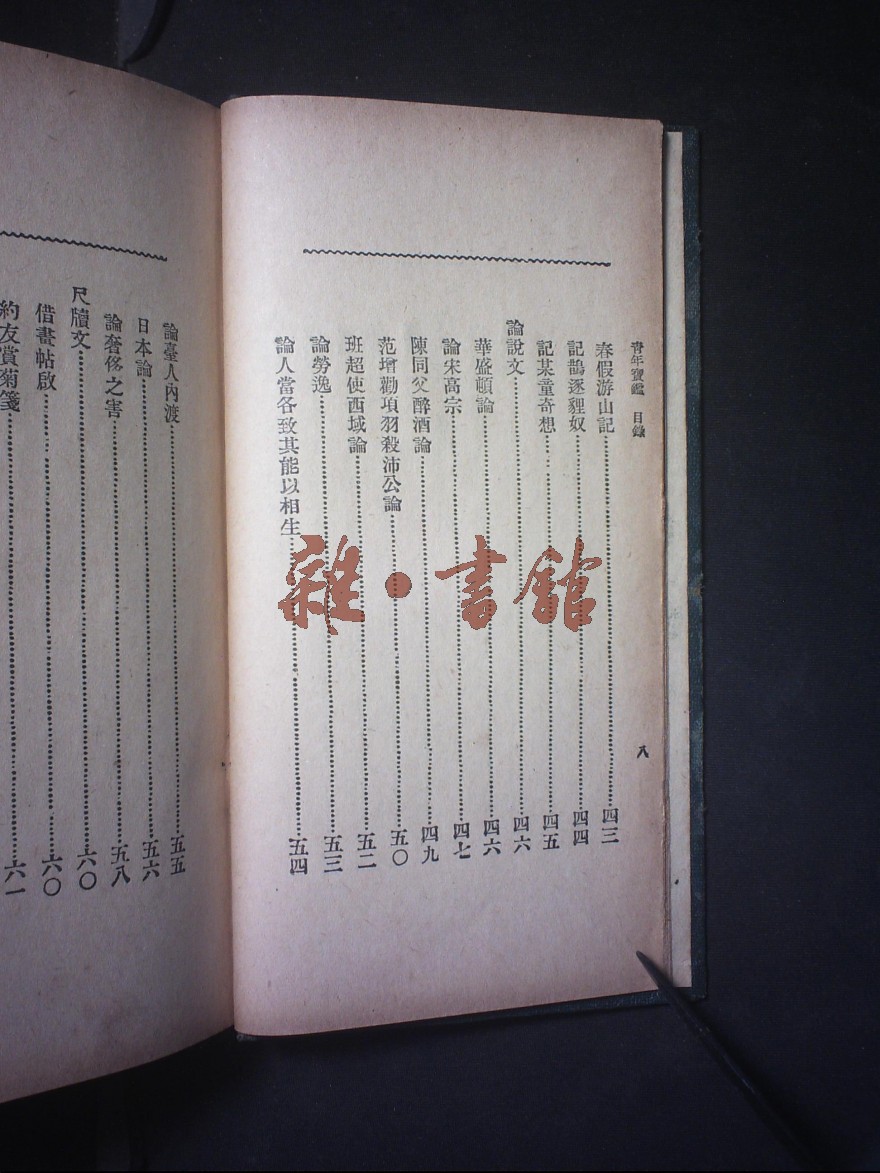 青年寶鑑 目錄 八
春假游山記 四三
記鵲逐貍奴 四四
記某童奇想 四五
論說文 四六
華盛頓論 四六
論宋高宗 四七
陳同父醉酒論 四九
范增勸項羽殺沛公論 五〇
班超使西域論 五二
論勞逸 五三
論人當各致其能以相生 五四
論臺人內渡 五五
日本論 五六
論奢侈之害 五八
尺牘文 六〇
借畫帖啟 六〇
約友賞菊箋 六一
雜·書館